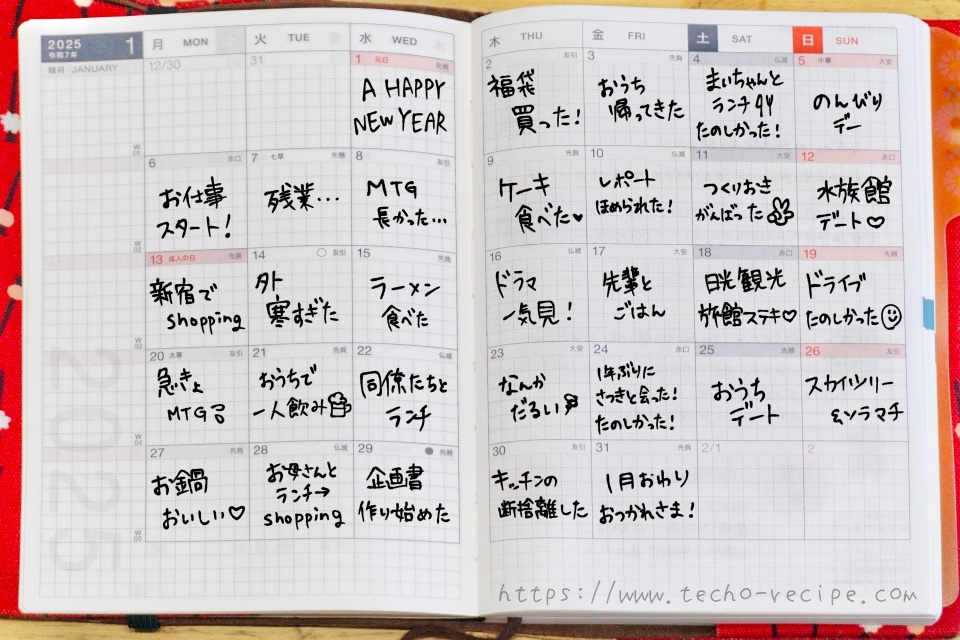 2025
令和7年
1
睦月 JANUARY
月 MON
火 TUE
水 WED
木 THU
金 FRI
土 SAT
日 SUN
12/30
31
1 元日 大安
A HAPPY
NEW YEAR
2 友引
福袋
買った!
3 先負
おうち
帰ってきた
4 仏滅
まいちゃんと
ランチ
たのしかった!
5 小寒 大安
のんびり
デー
W
01
6 赤口
お仕事
スタート!
7 七草 先勝
残業...
8 友引
MTG
長かった...
9 先負
ケーキ
食べた♥
10 仏滅
レポート
ほめられた!
11 大安
つくりおき
がんばった
12 赤口
水族館
デート♡
W
02
13 成人の日 先勝
新宿で
shopping
14 友引
外
寒すぎた
15 先負
ラーメン
食べた
16 仏滅
ドラマ
一気見!
17 大安
先輩と
ごはん
18 赤口
日光観光
旅館ステキ♡
19 先勝
ドライブ
たのしかった
W
03
20 大寒 友引
急きょ
MTG
21 先負
おうちで
一人飲み
22 仏滅
同僚たちと
ランチ
23 大安
なんか
だるい
24 赤口
1年ぶりに
さつきと会った!
たのしかった!
25 先勝
おうち
デート
26 友引
スカイツリー
&ソラマチ
W
04
27 先負
お鍋
おいしい♡
28 仏滅
お母さんと
ランチ→
shopping
29 先勝
企画書
作り始めた
30 友引
キッチンの
断捨離した
31 先負
1月おわり
おつかれさま!
2/1
2
W
05
2025
https://www.techo-recipe.com